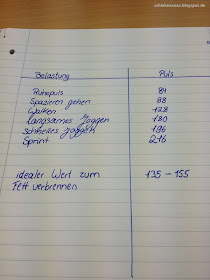 schlankesusa.blogspot.de
Belastung Puls
Ruhepuls 84
Spazieren gehen 88
Walken 128
langsames Joggen 180
schnelles Joggen 196
Sprint 216
idealer Wert zum 135 - 155
Fett verbrennen